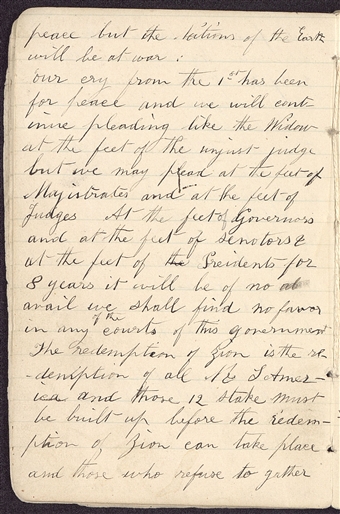 peace but the Nations of the Earth
will be at war:
our cry from the 1st has been
for peace and we will cont-
inue pleading like the Widow
at the feet of the unjust judge
but we may plead at the feet of
Majistrates and at the feet of
Judges At the feet of Governors
and at the feet of senotors &
at the feet of the Presidents for
8 years it will be of no
avail we shall find no favor
in any of the courts of this government
The redemption of Zion is the re
-demption of all N & S Amer-
ica and those 12 stake must
be built up before the redem-
ption of Zion can take place
and those who refuse to gather